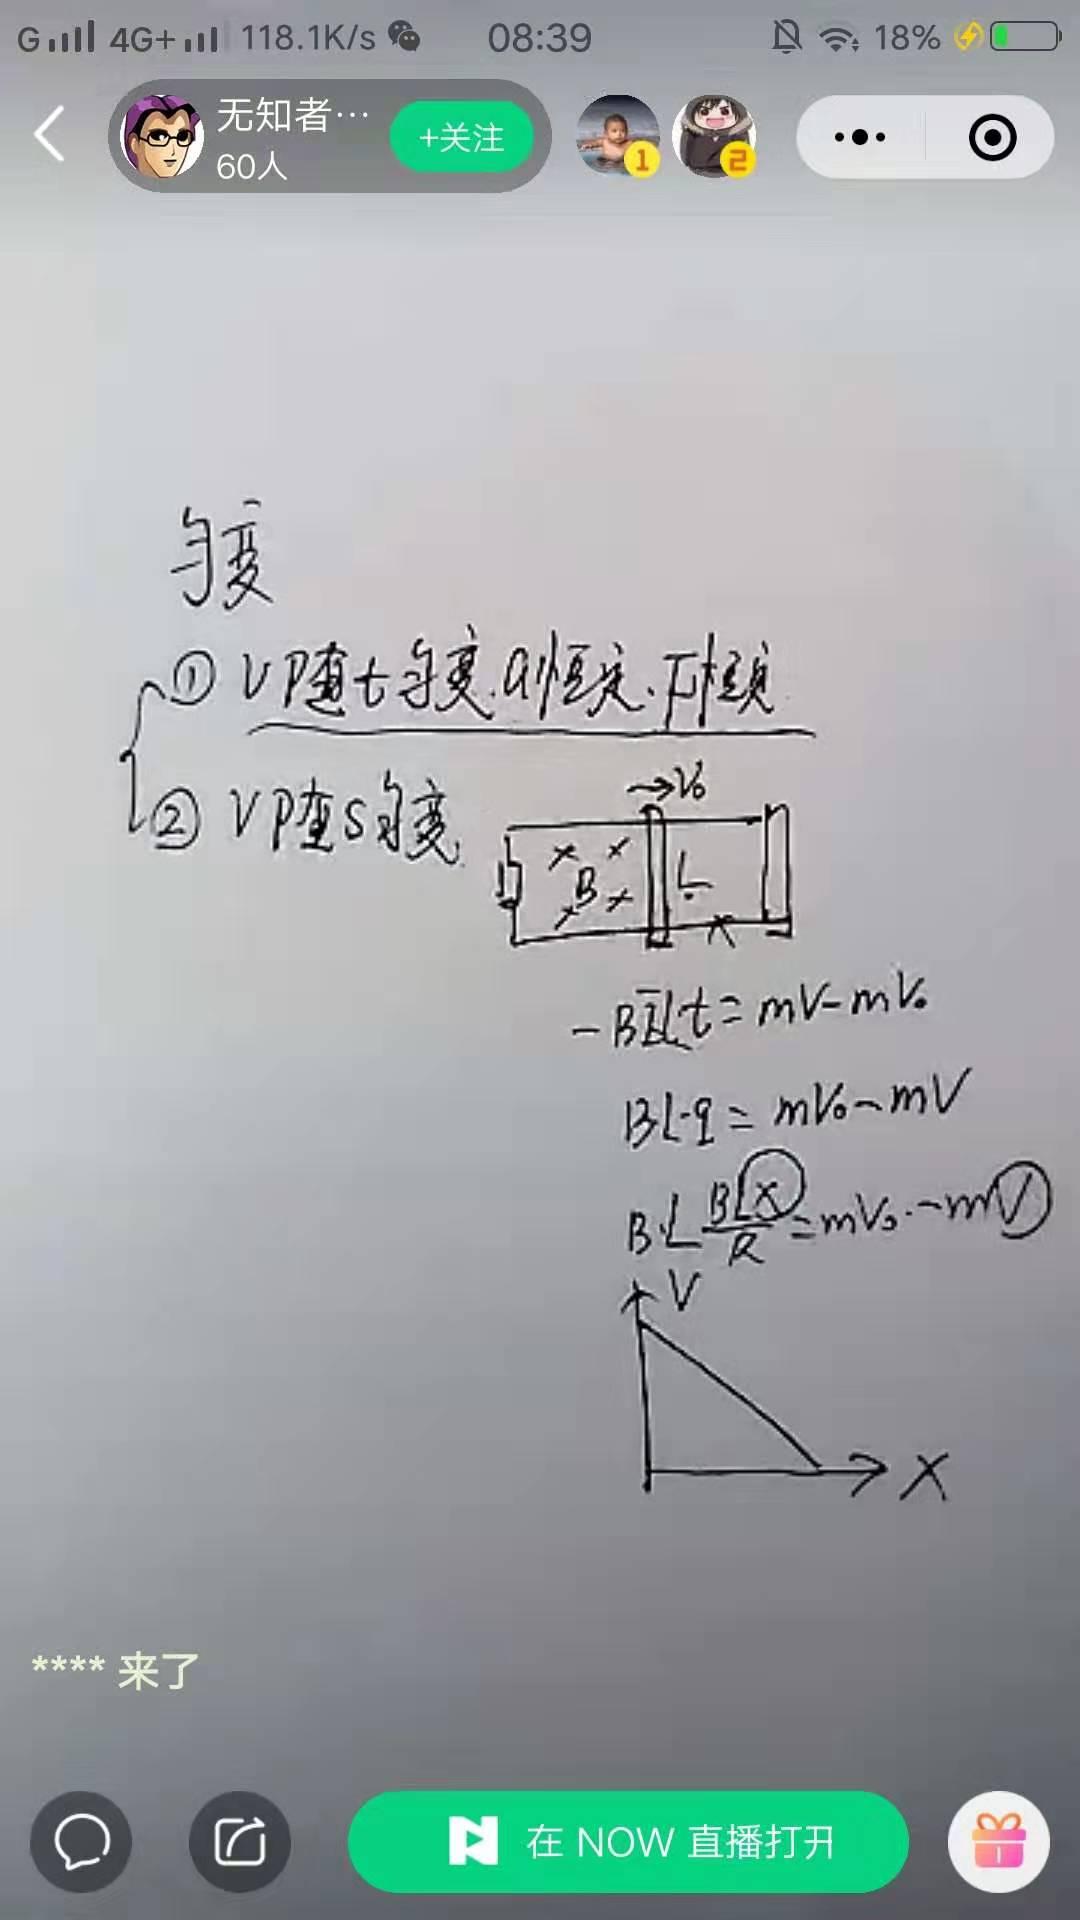 G 4G+ 118.1K/s 08:39 18%
无知者… +关注
60人
1 2
匀变
① V P随 t 匀变. a恒定. F恒定
② V P随 S 匀变
→V₀
B L
X
-BĪLt = mV - mV₀
BL·q = mV₀ - mV
B·L BLX/R = mV₀ - mV
V
X
**** 来了
在 NOW 直播打开